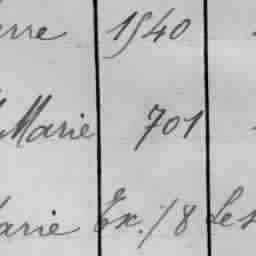 erre 1540
Marie 701
arie Ex. / 8 Les